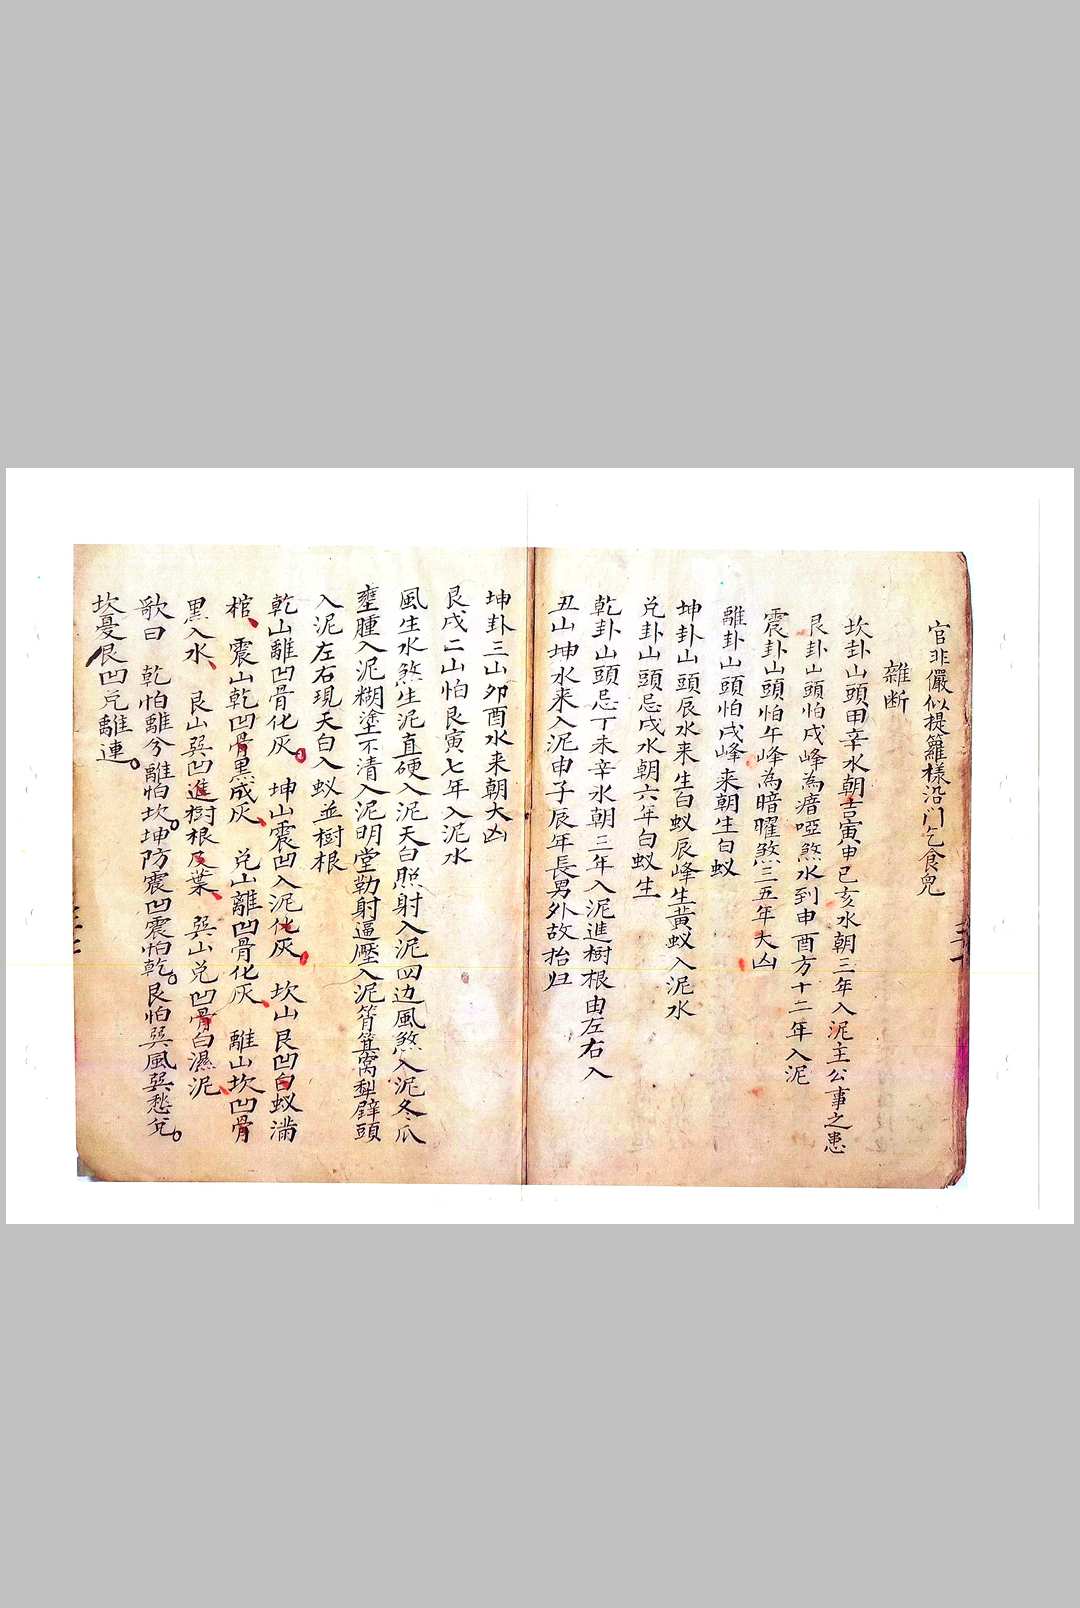 官非儼似提籮樣沿门乞食兒
雜断
坎卦山頭甲辛水朝言寅申巳亥水朝三年入泥主公事之患
艮卦山頭怕戌峰為瘖啞煞水到申酉方十二年入泥
震卦山頭怕午峰為暗曜煞三五年大凶
離卦山頭怕戌峰来朝生白蚁
坤卦山頭辰水来生白蚁辰峰生黄蚁入泥水
兑卦山頭忌戌水朝六年白蚁生
乾卦山頭忌丁未辛水朝三年入泥進樹根由左右入
丑山坤水来入泥申子辰年長男外故抬归
坤卦三山卯酉水来朝大凶
艮戌二山怕艮寅七年入泥水
風生水煞生泥直硬入泥天白照射入泥四边風煞入泥冬瓜
壅腫入泥糊塗不清入泥明堂勒射逼壓入泥筲箕窩犁鐴頭
入泥左右現天白入蚁並樹根
乾山離凹骨化灰。坤山震凹入泥化灰、坎山艮凹白蚁满
棺、震山乾凹骨黒成灰、兑山離凹骨化灰、離山坎凹骨
黒入水、艮山巽凹進樹根及葉、巽山兑凹骨白濕泥、
歌曰 乾怕離兮離怕坎。坤防震凹震怕乾。艮怕巽風巽愁兌。
坎憂艮凹兑離連。